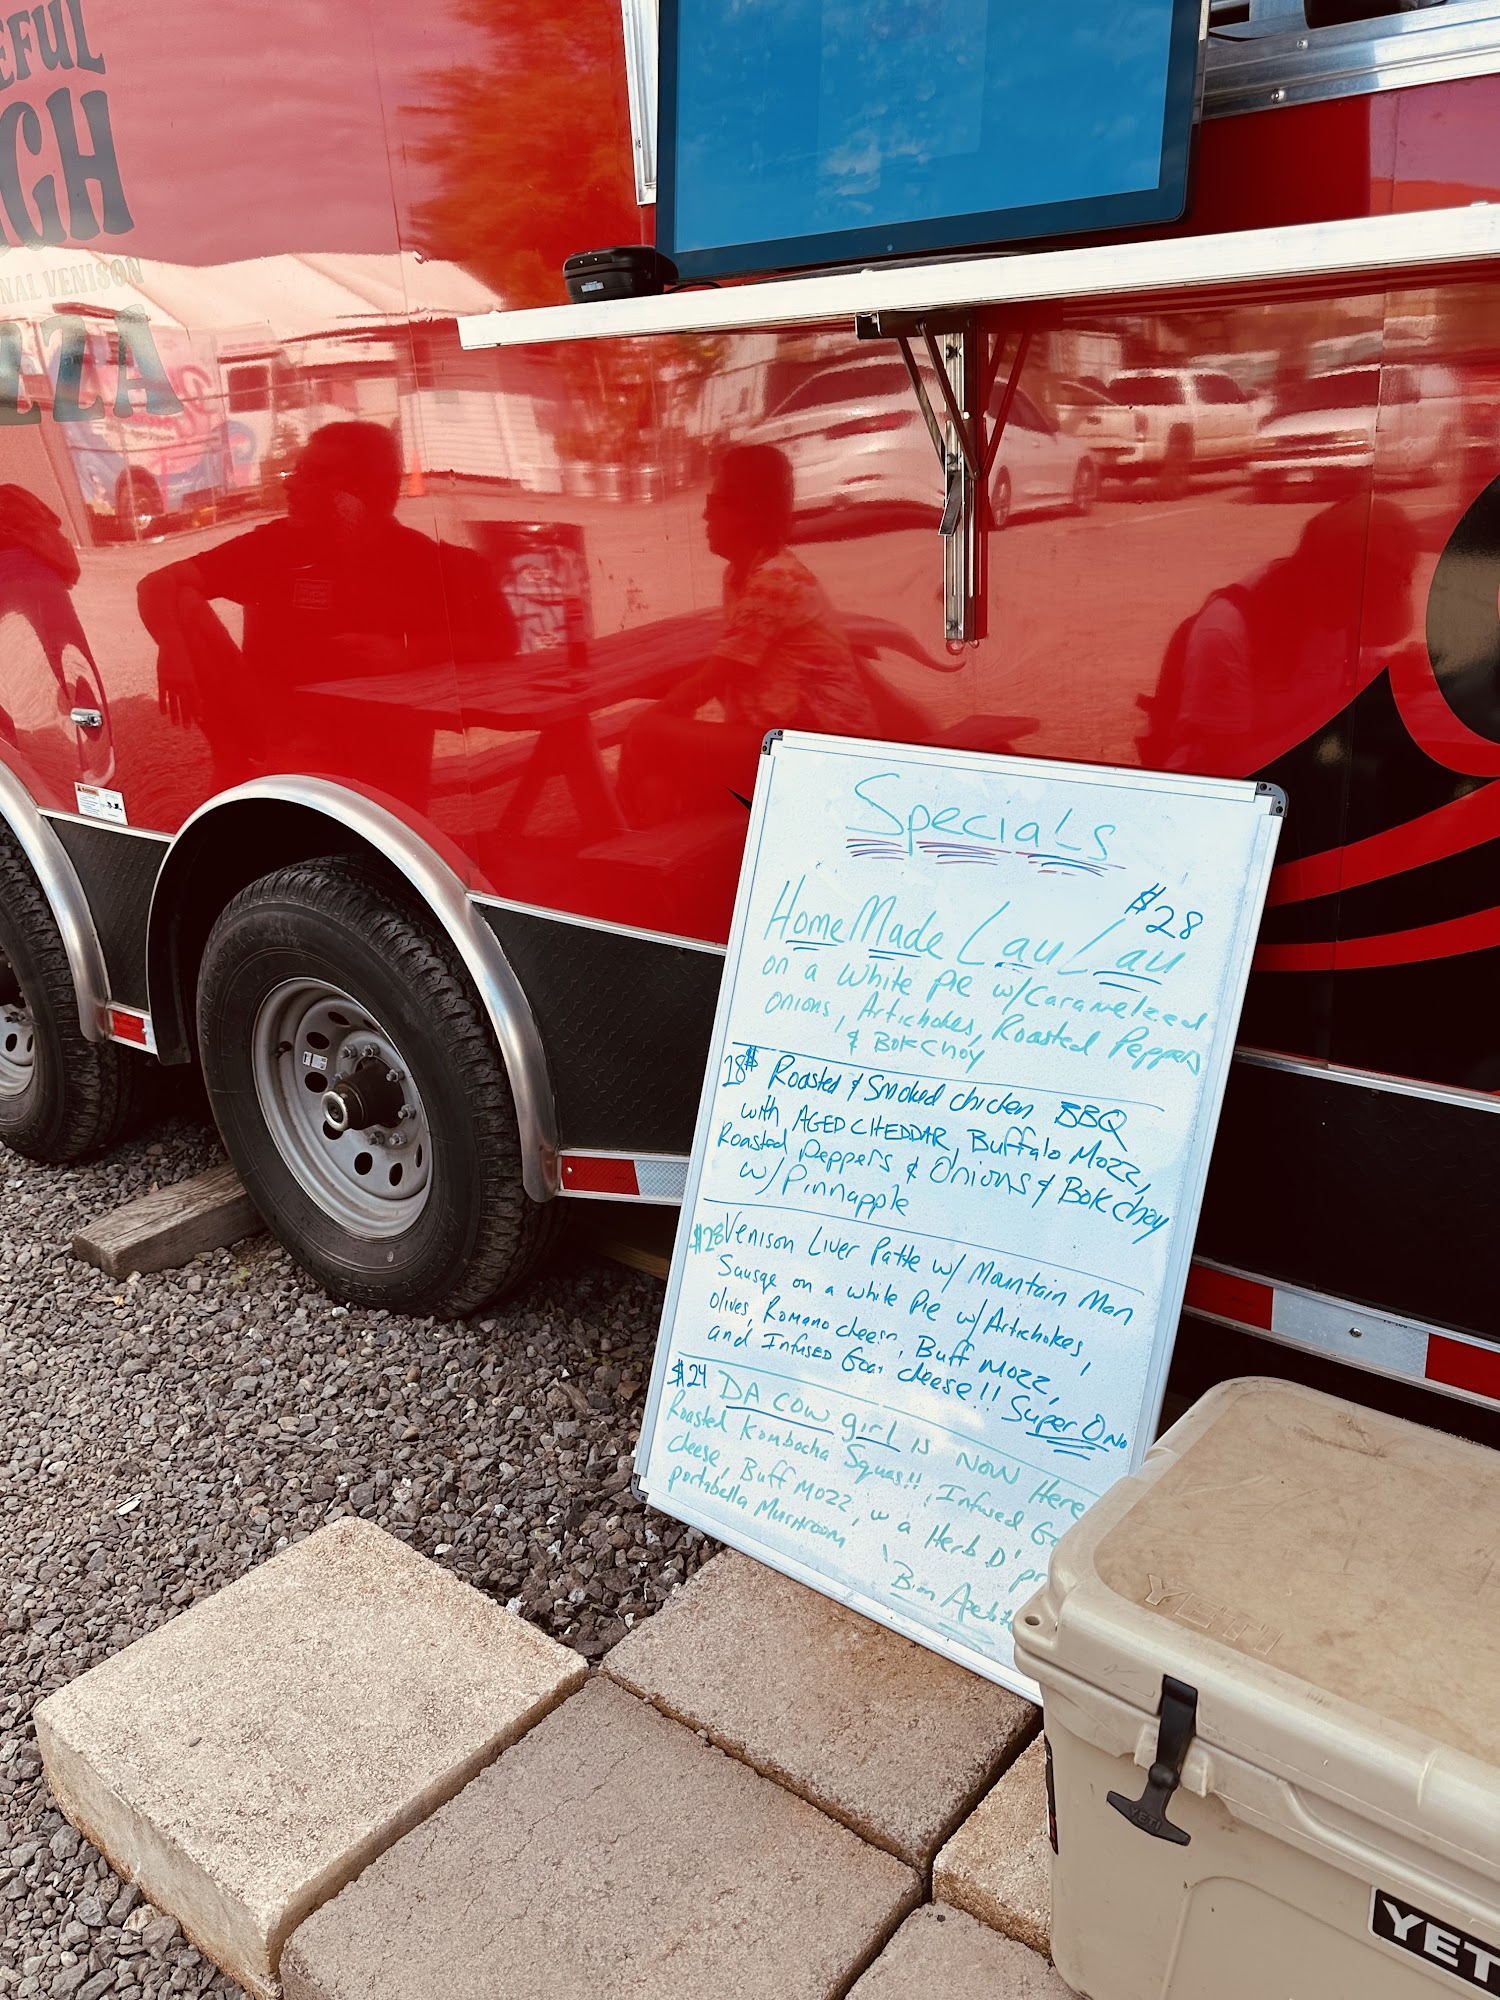 EFUL
GH
NAL VENISON
ZZA
Specials
$28
HomeMade LauLau
on a white pie w/Caramelzed
onions, Artichokes, Roasted Peppers
& BokChoy
28$ Roasted & Smoked chicken BBQ
with AGED CHEDDAR, Buffalo Mozz,
Roasted Peppers & Onions & Bok choy
w/ Pinnapple
$28 Venison Liver Patte w/ Mountain Man
Sausge on a white Pie w/Artichokes,
Olives, Romano cheese, Buff mozz,
and Infused Goat cheese!! Super Ono
$24 DA cow girl is Now Here
Roasted Kombocha Squas!! , Infused Go
cheese, Buff mozz, w a Herb D' pr
portabella Mushroom
Bon Apetit
YETI
YETI
YET